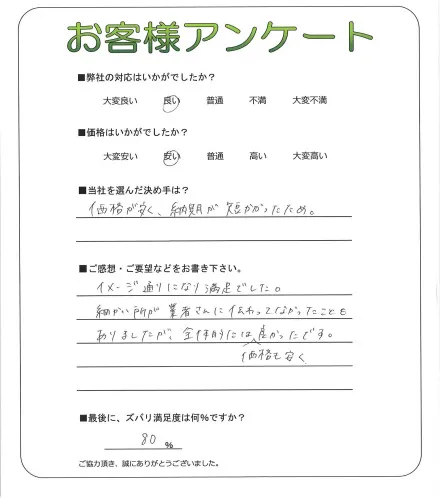 お客様アンケート
■弊社の対応はいかがでしたか?
大変良い 良い 普通 不満 大変不満
■価格はいかがでしたか?
大変安い 安い 普通 高い 大変高い
■当社を選んだ決め手は?
価格が安く、納期が短かかったため。
■ご感想・ご要望などをお書き下さい。
イメージ通りになり満足でした。
細かい所が業者さんに伝わってなかったことも
ありましたが、全体的には良かったです。
価格も安く
■最後に、ズバリ満足度は何%ですか?
80 %
ご協力頂き、誠にありがとうございました。